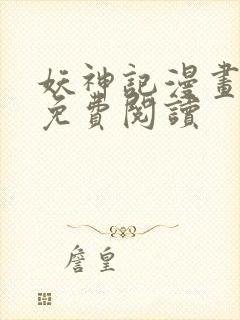 妖神記漫畫
免費閱讀
詹皇